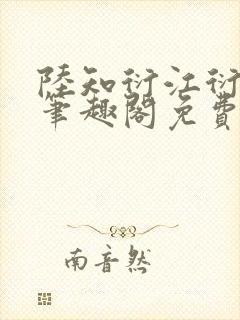 陸知衍江衍
筆趣閣免費
南音然